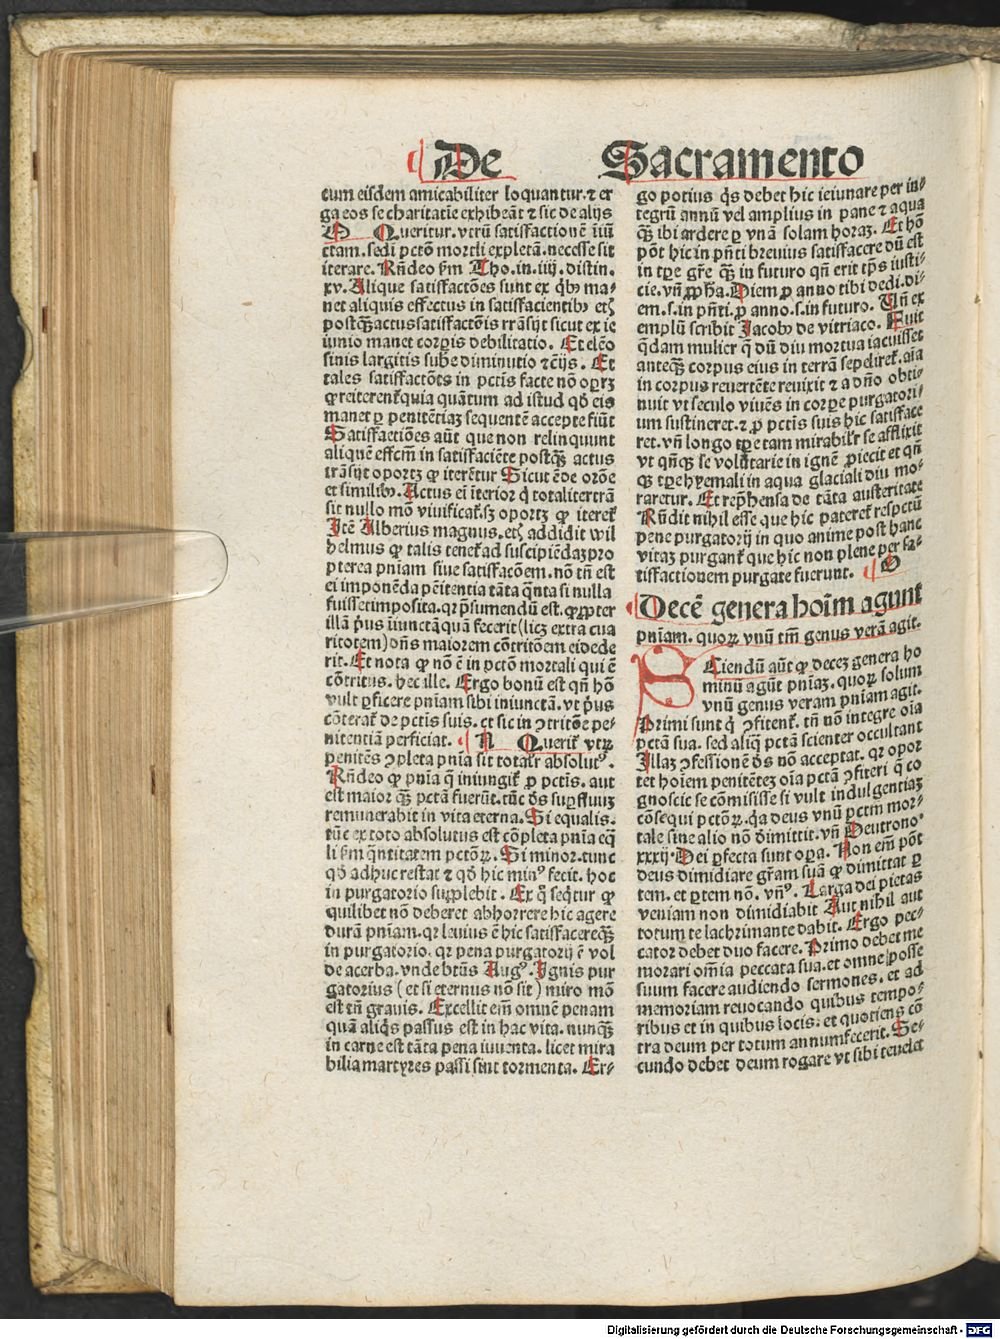 De Sacramento
cum eisdem amicabiliter loquantur. ⁊ er
ga eos se charitatiue exhibeāt ⁊ sic de alijs
M Queritur. vtrū satisfactionē iniū
ctam. sed in pctō mortli expletā. necesse sit
iterare. Rñdeo ẜm Tho. in. iiij. distin.
xv. Alique satisfactōes sunt ex qbꝰ ma-
net aliquis effectus in satisfacientibꝰ etꝫ
postqꝫ actus satisfactōis trāsijt sicut ex ie
iunio manet corpis debilitatio. Et eleō
sinis largitis substē diminutio ⁊ cīijs. Et
tales satisfactōes in pctis facte nō opꝫ
ꝙ reiterent̉ quia quātum ad istud qd̓ eis
manet p penitētiaꝫ sequentē accepte fiūt
Satisfactiōes aūt que non relinquunt
aliquē effcm̄ in satisfaciēte postqꝫ actus
trāsijt oportꝫ ꝙ iterētur Sicut ē de orōe
et similibꝰ. Actus ei̅ iterior q̓ totaliter trā
sit nullo mō viuificat̉. sꝫ oportꝫ ꝙ iteret̉
Itē Albertus magnus. etꝫ addidit wil
helmus ꝙ talis tenet̉ ad suscipiēdaꝫ pro
pterea pniam siue satisfacōem. nō tñ est
ei imponēda pēitentia tāta q̄nta si nulla
fuisset imposita. qꝛ p̄sumendū est. ꝙ ꝓpter
illā p̓us iniunctā quā fecerit (licꝫ extra cha
ritatem) dñs maiorem cōtritōem ei dede
rit. Et nota ꝙ nō ē in pctō mortali qui ē
cōtritus. hec ille. Ergo bonū est qñ hō
vult pficere pniam sibi iniunctā. vt p̓us
cōterat̉ de pctis suis. et sic in ↄtritōe pe-
nitentiā perficiat. N Querit̉ vtꝝ
penitēs ↄpleta pnia sit totalr̄ absolutꝰ.
Rñdeo ꝙ pnia q̄ iniungit̉ ꝓ pctis. aut
est maior qꝫ pctā fuerūt. tūc dꝰ supfluūꝫ
remunerabit in vita eterna. Si equalis.
tūc ex toto absolutus est cōpleta pnia eq̄
li ẜm q̄ntitatem pctōꝝ. Si minor. tunc
qd̓ adhuc restat ⁊ qd̓ hic minꝰ fecit. hoc
in purgatorio supplebit. Ex q̊ seqtur ꝙ
quilibet nō deberet abhorrere hic agere
durā pniam. qꝛ leuius ē hic satisfacere qꝫ
in purgatorio. qꝛ pena purgatorij ē vol
de acerba. vnde btūs Augꝰ. Ignis pur
gatorius (et si eternus nō sit) miro mō
est tñ grauis. Excellit em̄ omnē penam
quā aliqs passus est in hac vita. nunqꝫ
in carne est tāta pena inuenta. licet mira
bilia martyres passi sint tormenta. Er-
go potius qs debet hic ieiunare per in-
tegrū annū vel amplius in pane ⁊ aqua
qꝫ ibi ardere p vnā solam horaꝫ. Et hō
pōt hic in pñti breuius satisfacere dū est
in tpe gr̄e qꝫ in futuro qñ erit tps iusti-
cie. vñ ꝓpha. Diem ꝓ anno tibi dedi. di-
em. s. in pñti. ꝓ anno. s. in futuro. Vñ ex
emplū scribit Jacobꝰ de vitriaco. Fuit
q̄dam mulier q̄ dū diu mortua iacuisset
anteqꝫ corpus eius in terrā sepeliret̉. aīa
in corpus reuertēte reuixit ⁊ a dño obti-
nuit vt seculo viuēs in corpe purgatori-
um sustineret. ⁊ ꝓ pctis suis hic satisface
ret. vñ longo tpe tam mirabilr̄ se afflixit
vt qñqꝫ se volūtarie in ignē ꝓiecit et qñ
qꝫ tpe hyemali in aqua glaciali diu mo-
raretur. Et rephēsa de tāta austeritate
Rñdit nihil esse que hic pateret̉ respctū
pene purgatorij in quo anime post hanc
vitaꝫ purgant̉ que hic non plene per sa-
tisfactionem purgate fuerunt. O
Decē genera hoīm agunt
pnīam. quoꝝ vnū tm̄ genus verā agit.
SCiendū aūt ꝙ deceꝫ genera ho
minū agūt pniaꝫ. quoꝝ solum
vnū genus veram pniam agit.
Primi sunt q̓ ↄfitent̉. tñ nō integre oīa
pctā sua. sed aliq̄ pctā scienter occultant
Illaꝫ ↄfessionē dꝰ nō acceptat. qꝛ opor
tet hoiem penitēteꝫ oīa pctā ↄfiteri q̄ co
gnoscit se cōmisisse si vult indulgentiaꝫ
cōsequi pctōꝝ. qa deus vnū pctm̄ mor-
tale sine alio nō dimittit. vñ Deutrono-
xxxij. Dei pfecta sunt opa. Non em̄ pōt
deus dimidiare gr̄am suā ꝙ dimittat p
tem. et ptem nō. vñꝰ. Larga dei pietas
veniam non dimidiabit Aut nihil aut
totum te lachrimante dabit. Ergo pec-
cator debet duo facere. Primo debet me
morari om̄ia peccata sua. et omne posse
suum facere audiendo sermones. et ad
memoriam reuocando quibus tempo-
ribus et in quibus locis. et quotiens cō
tra deum per totum annum fecerit. Se-
cundo debet deum rogare vt sibi reuelet
Digitalisierung gefördert durch die Deutsche Forschungsgemeinschaft - DFG